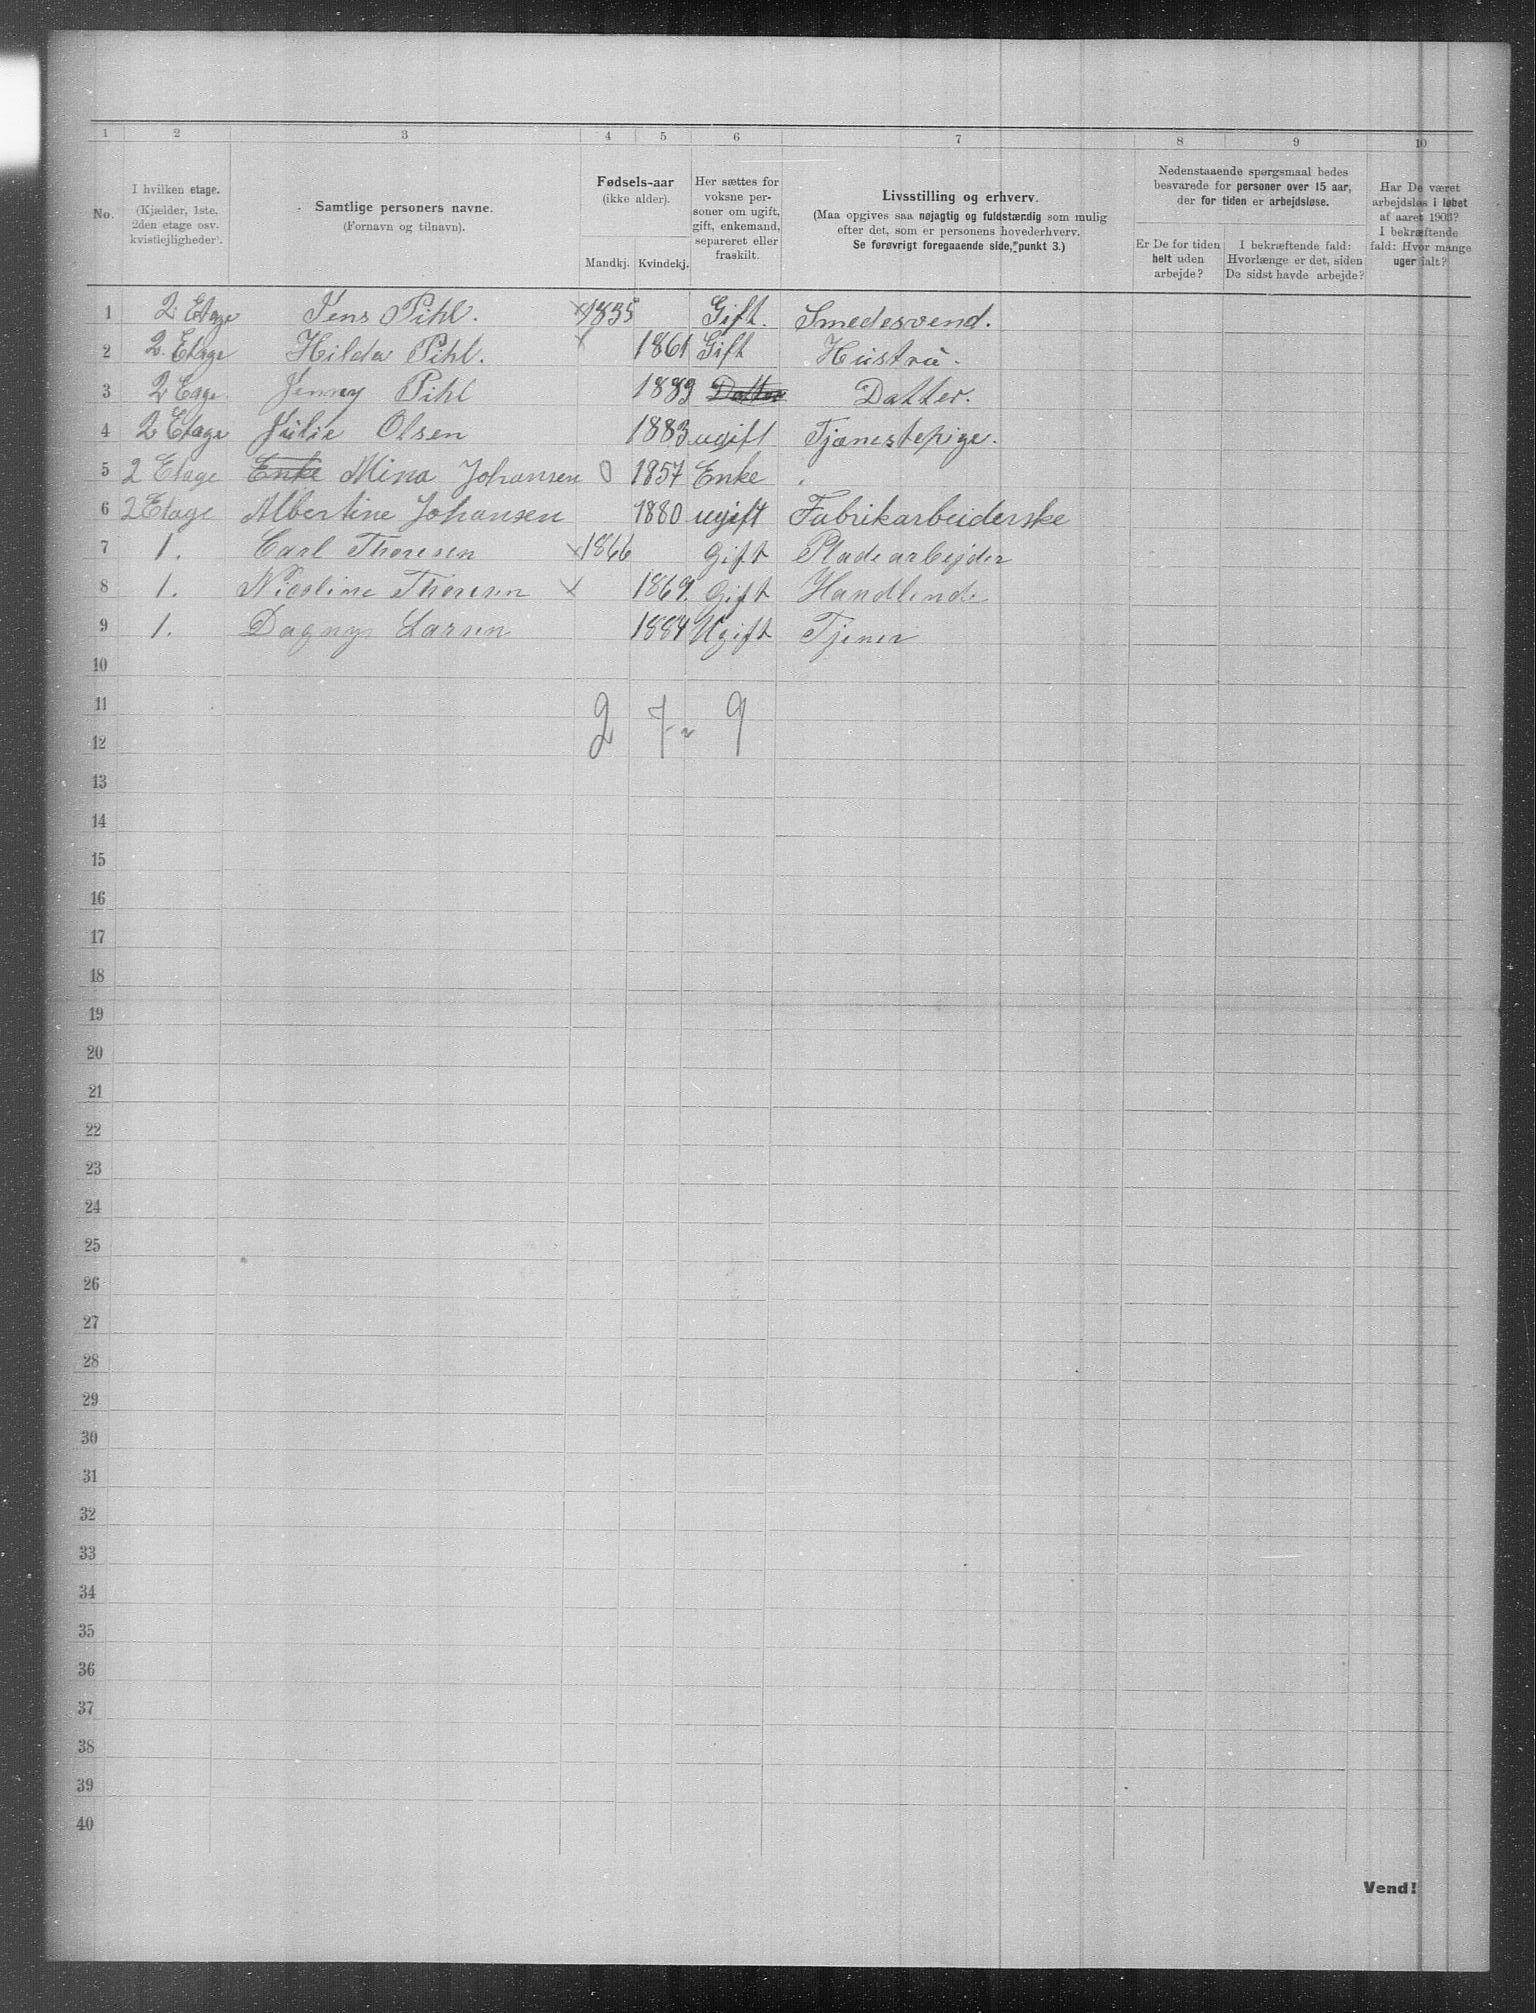 1 2 3 4 5 6 7 8 9 10
No.
I hvilken etage.
(Kjælder, 1ste, 2den etage osv. kvistlejligheder).
Samtlige personers navne.
(Fornavn og tilnavn).
Fødsels-aar
(ikke alder).
Mandkj. Kvindekj.
Her sættes for voksne per-
soner om ugift, gift, enkemand, separeret eller fraskilt.
Livsstilling og erhverv.
(Maa opgives saa nøjagtig og fuldstændig som mulig
efter det, som er personens hovederhverv.
Se forøvrigt foregaaende side, punkt 3.)
Nedenstaaende spørgsmaal bedes
besvarede for personer over 15 aar,
der for tiden er arbejdsløse.
Er De for tiden
helt uden
arbejde?
I bekræftende fald:
Hvorlænge er det, siden
De sidst havde arbejde?
Har De været
arbejdsløs i løbet
af aaret 1903?
I bekræftende
fald: Hvor mange
uger ialt?
1 2 Etage Jens Pihl. x 1835 Gift. Smedesvend.
2 2. Etage Hilda Pihl. x 1861 Gift Hustru.
3 2 Etage Jenny Pihl 1889 Datter Datter.
4 2 Etage Julie Olsen 1883 ugift Tjænestepige.
5 2 Etage Enke Mina Johansen 0 1857 Enke
6 2 Etage Albertine Johansen 1880 ugift Fabrikarbeiderske
7 1. Carl Thoresen x 1866 Gift Pladearbejder
8 1. Nicoline Thoresen x 1869. Gift Handlende
9 1. Dagny Larsen 1884 Ugift Tjener
10
11
2 7 9
12
13
14
15
16
17
18
19
20
21
22
23
24
25
26
27
28
29
30
31
32
33
34
35
36
37
38
39
40
Vend!